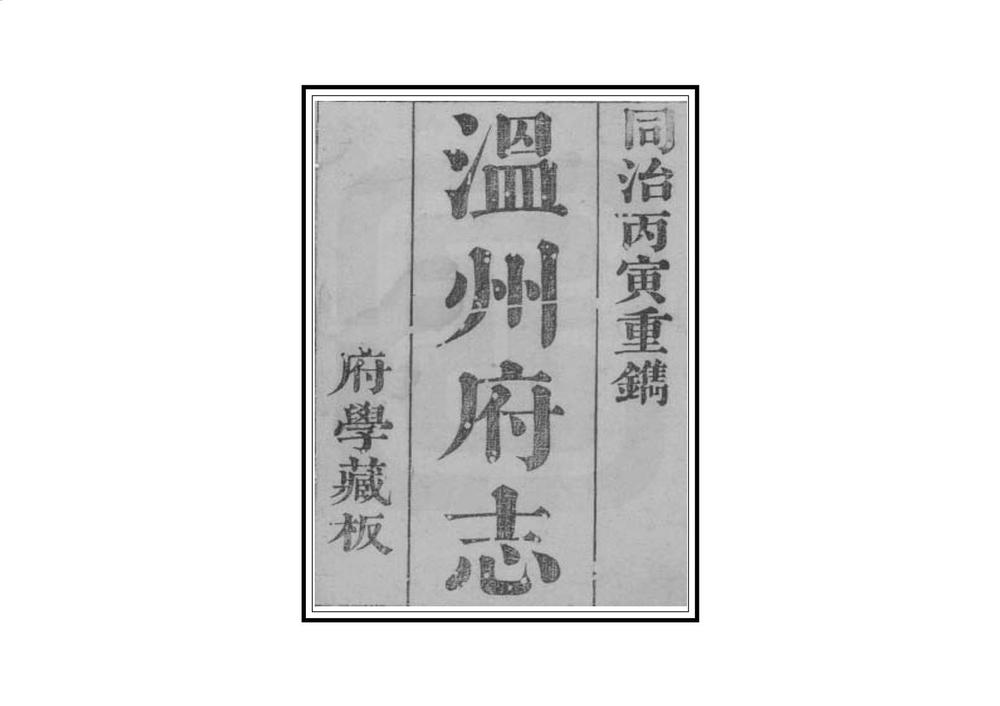 同治丙寅重鐫
溫州府志
府學藏板